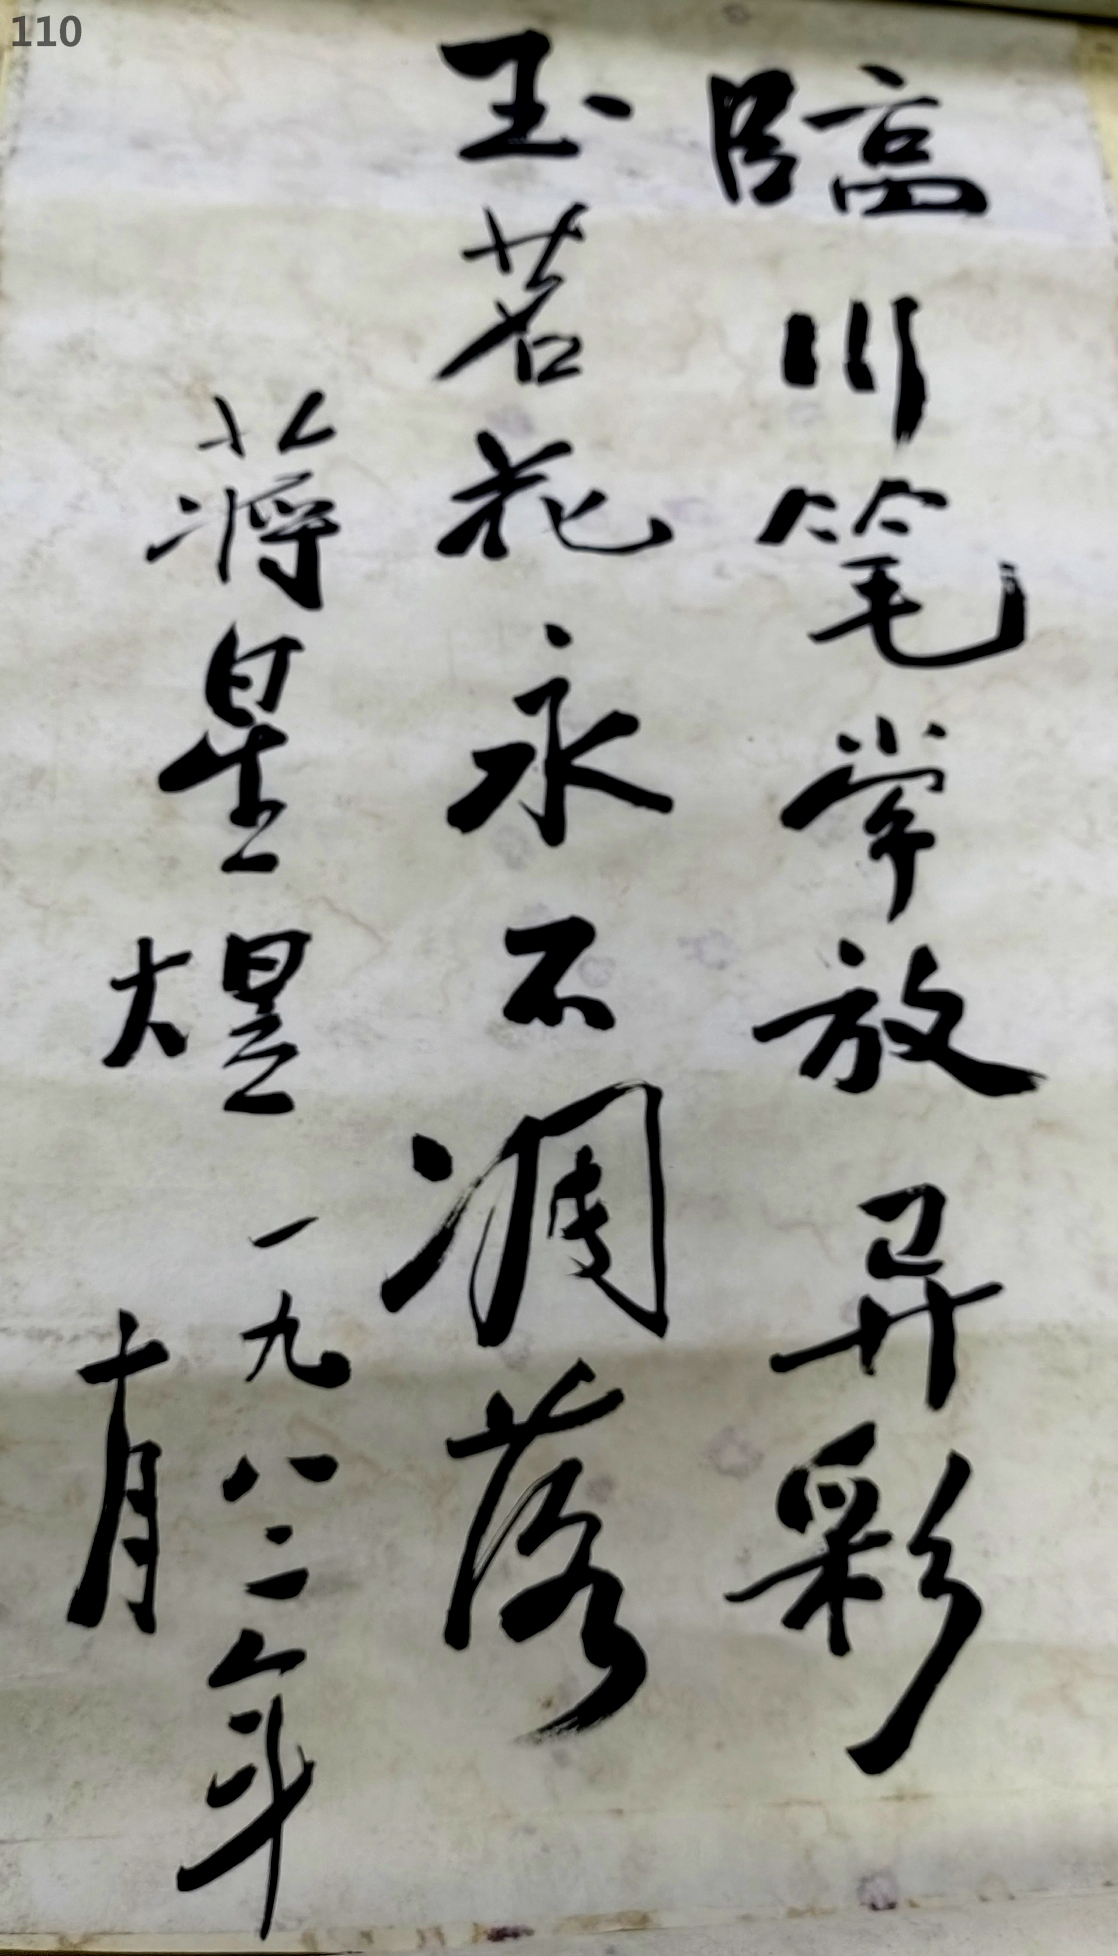 110
臨川笔掌放异彩
玉茗花永不凋落
蒋星煜 一九八二年
十月